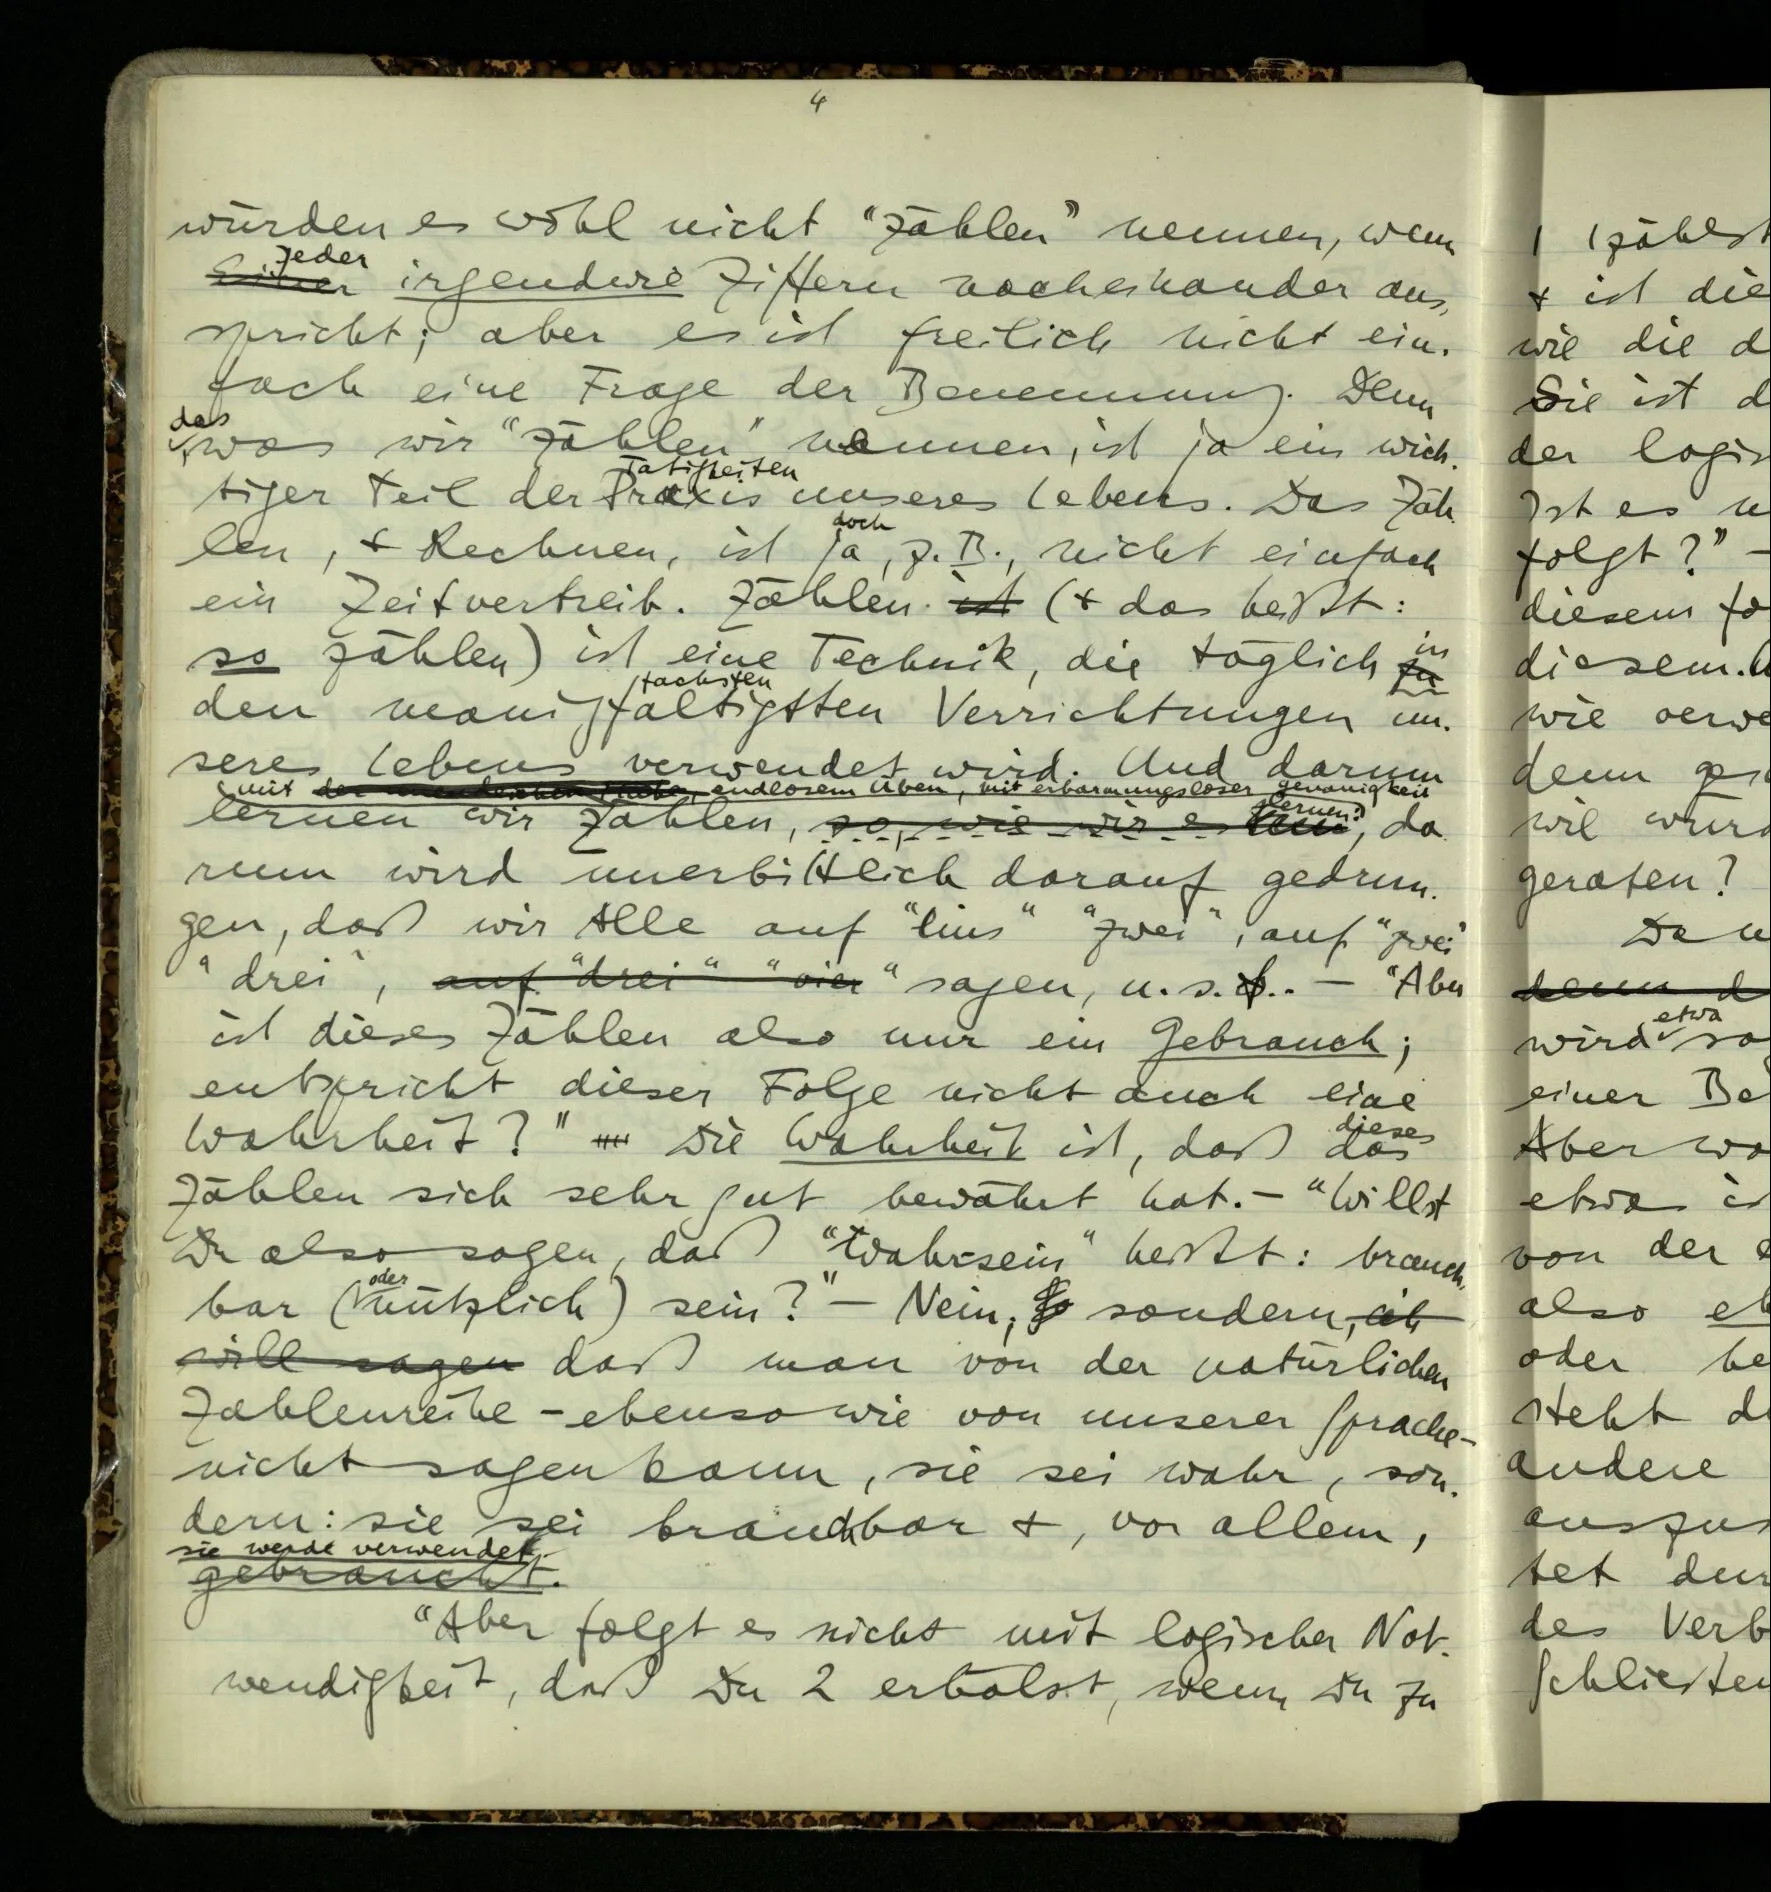 4
würden es wohl nicht "zählen" nennen, wenn
jeder
einer irgendwie Ziffern nacheinander aus,
spricht; aber es ist freilich nicht ein.
fach eine Frage der Benennung. Denn
das
was wir "zählen" nennen, ist ja ein wich.
Tätigkeiten
tiger Teil der Praxis unseres Lebens. Das Zäh.
doch
len, & Rechnen, ist ja, z.B., nicht einfach
ein Zeitvertreib. Zählen ist (& das heißt:
in
so zählen) ist eine Technik, die täglich zu
fachsten
den manigfaltigsten Verrichtungen un.
seres Lebens verwendet wird. Und darum
mit endlosem Üben, mit erbarmungsloser Genauigkeit
lernen
lernen wir zählen, so, wie wir es , da
rum wird unerbittlich darauf gedrun.
gen, daß wir Alle auf "eins" "zwei", auf "zwei"
"drei", auf "drei" "vier" sagen, u.s.f.. — "Aber
ist dieses Zählen also nur ein Gebrauch;
entspricht dieser Folge nicht auch eine
Wahrheit?" Die Wahrheit ist, daß das
dieses
Zählen sich sehr gut bewährt hat. — "Willst
Du also sagen, daß "wahr-sein" heißt: brauch,
oder
bar (nützlich) sein?" — Nein; sondern, ich
will sagen daß man von der natürlichen
Zahlenreihe – ebenso wie von unserer Sprache –
nicht sagen kann, sie sei wahr, son.
dern: sie sei brauchbar &, vor allem,
sie werde verwendet.
gebraucht.
"Aber folgt es nicht mit logischer Not.
wendigkeit, daß Du 2 erhälst, wenn Du zu
1 1 zählst
& ist die
wie die
Sie ist
der
Ist es
folgt?" –
diesem
diesem.
wie
denn
wie
geraten?
denn
etwa
wird
einer
Aber
etwa
von der
also
oder
steht
andere
tet
des